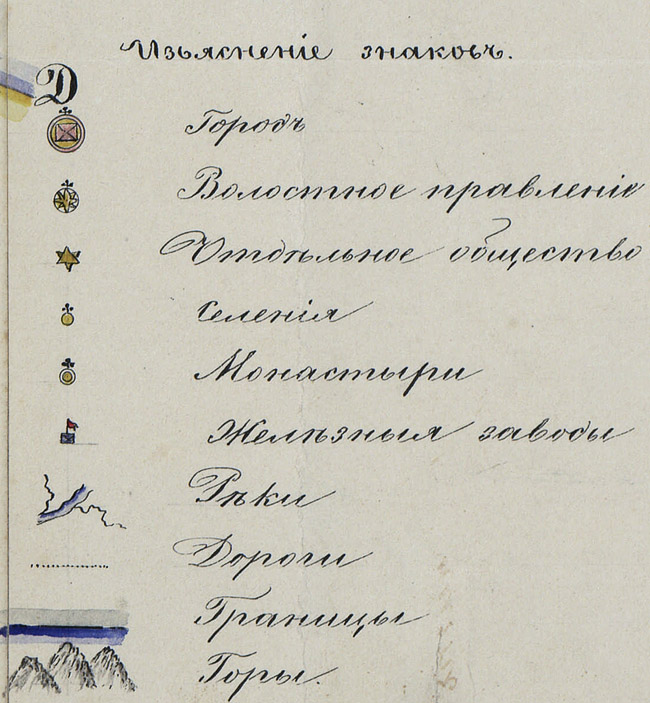 Изъясненіе знаковъ.
D
Городъ
Волостное правленіе
Отдѣльное общество
Селенія
Монастыри
Желѣзныя заводы
Рѣки
Дороги
Границы
Горы.